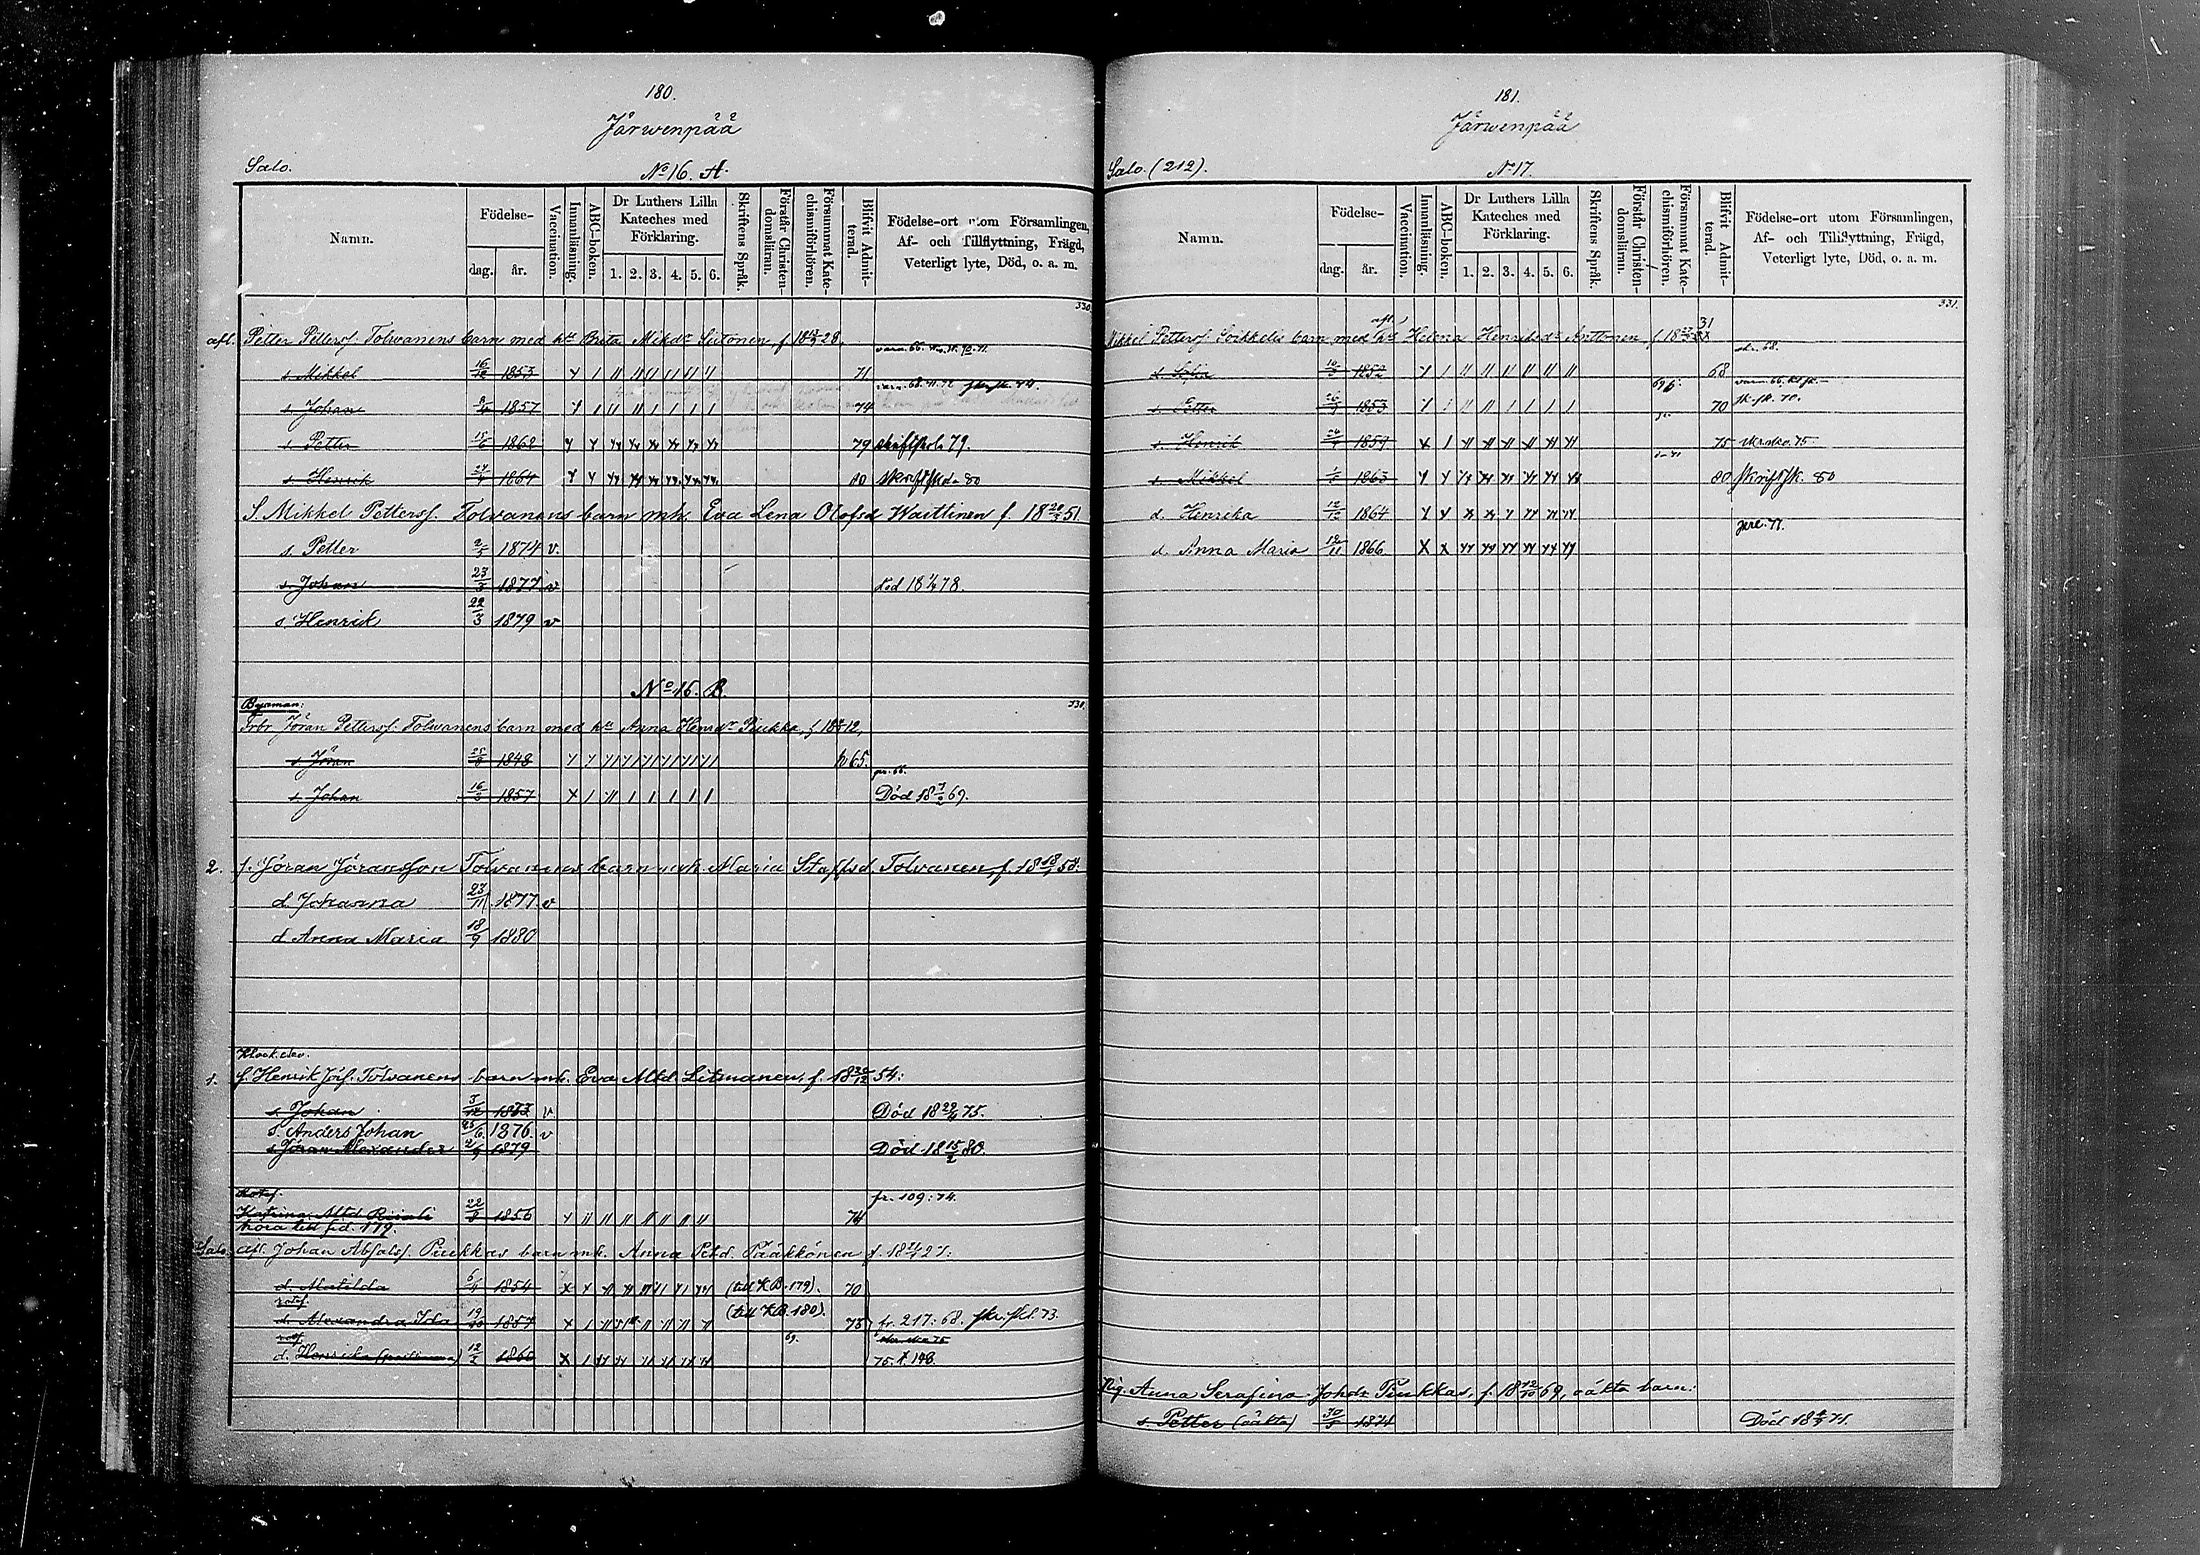 180.
Järwenpää
Salo.
No 16. A.
Namn.
Födelse-
dag. år.
Vaccination.
Innanläsning.
ABC-boken.
Dr Luthers Lilla Kateches med Förklaring.
1. 2. 3. 4. 5. 6.
Skriftens Språk.
Förstår Christendomsläran.
Försummat Katechismiförhören.
Blifvit Admitterad.
Födelse-ort utom Församlingen,
Af- och Tillflyttning, Frägd,
Veterligt lyte, Död, o. a. m.
330
afl. Petter Petterss. Tolwanens barn med hu Brita Mikdr
s. Mikkel 16/12 1853 71
s. Johan 1857 74
s. Petter 15/6 1862 79 skriftskola 79.
s. Henrik 24/4 1864 80 skriftskola 80
S. Mikkel Petterss. Tolvanens barn mh. Eva Lena Olofsd Waittinen f. 18 51.
s. Petter 2/5 1874 v.
s. Johan 23/3 1877 v död 18 78.
s. Henrik 22/3 1879 v
No 16. B.
330.
Byaman:
Jöran Petterss. Tolwanens barn med hu Anna Henrdr Piukka, f. 18 12,
s. Jöran 1848 65.
s. Johan 16/3 1857 Död 18 7/2 69.
2. s. Jöran Jöransson Tolvanens barn mh. Maria Staffsd. Tolvanen, f. 18 58.
d. Johanna 23/11 1877. v
d. Anna Maria 18/9 1880
Klock.elev.
1. s. Henrik Jörs. Tolvanens barn mh. Eva Altd. Litmanen, f. 18 30/12 54:
s. Johan 1873 v Död 18 22/4 75.
s. Anders Johan 25/6 1876. v
s. Jöran Alexander 2/9 1879 Död 18 15/2 80.
fr. 109:74.
Katrina Altd. 22/8 1856 74
höra till sid. 179.
Salo. afl. Johan Absalss. Piukkas barn mh. Anna Petd. Pääkkönen f. 18 27.
d. Matilda 6/4 1854 (till K B. 179). 70
d. Alexandra 1857 (till K B. 180). 73 fr. 217:68. skr.skl. 73.
69.
d. Henrika 12/2 1860
181.
Järwenpää
Salo. (212).
No 17.
Namn.
Födelse-
dag. år.
Vaccination.
Innanläsning.
ABC-boken.
Dr Luthers Lilla Kateches med Förklaring.
1. 2. 3. 4. 5. 6.
Skriftens Språk.
Förstår Christendomsläran.
Försummat Katechismiförhören.
Blifvit Admitterad.
Födelse-ort utom Församlingen,
Af- och Tillflyttning, Frägd,
Veterligt lyte, Död, o. a. m.
331.
Mikkel Petterss. Soikkelis barn med afl. hu Helena Henriksdr Anttonen, f. 18 31
68
s. Petter 1853 70 sk.sk. 70.
s. Henrik 1859 75
s. Mikkel 1863 80 skriftsk. 80
d. Henrika 1864
d. Anna Maria 12/11 1866
Pig. Anna Serafina Johdr Piukkas, f. 18 12/10 69, oäkta barn:
s. Petter (oäkta) 1871 Död 18 71.